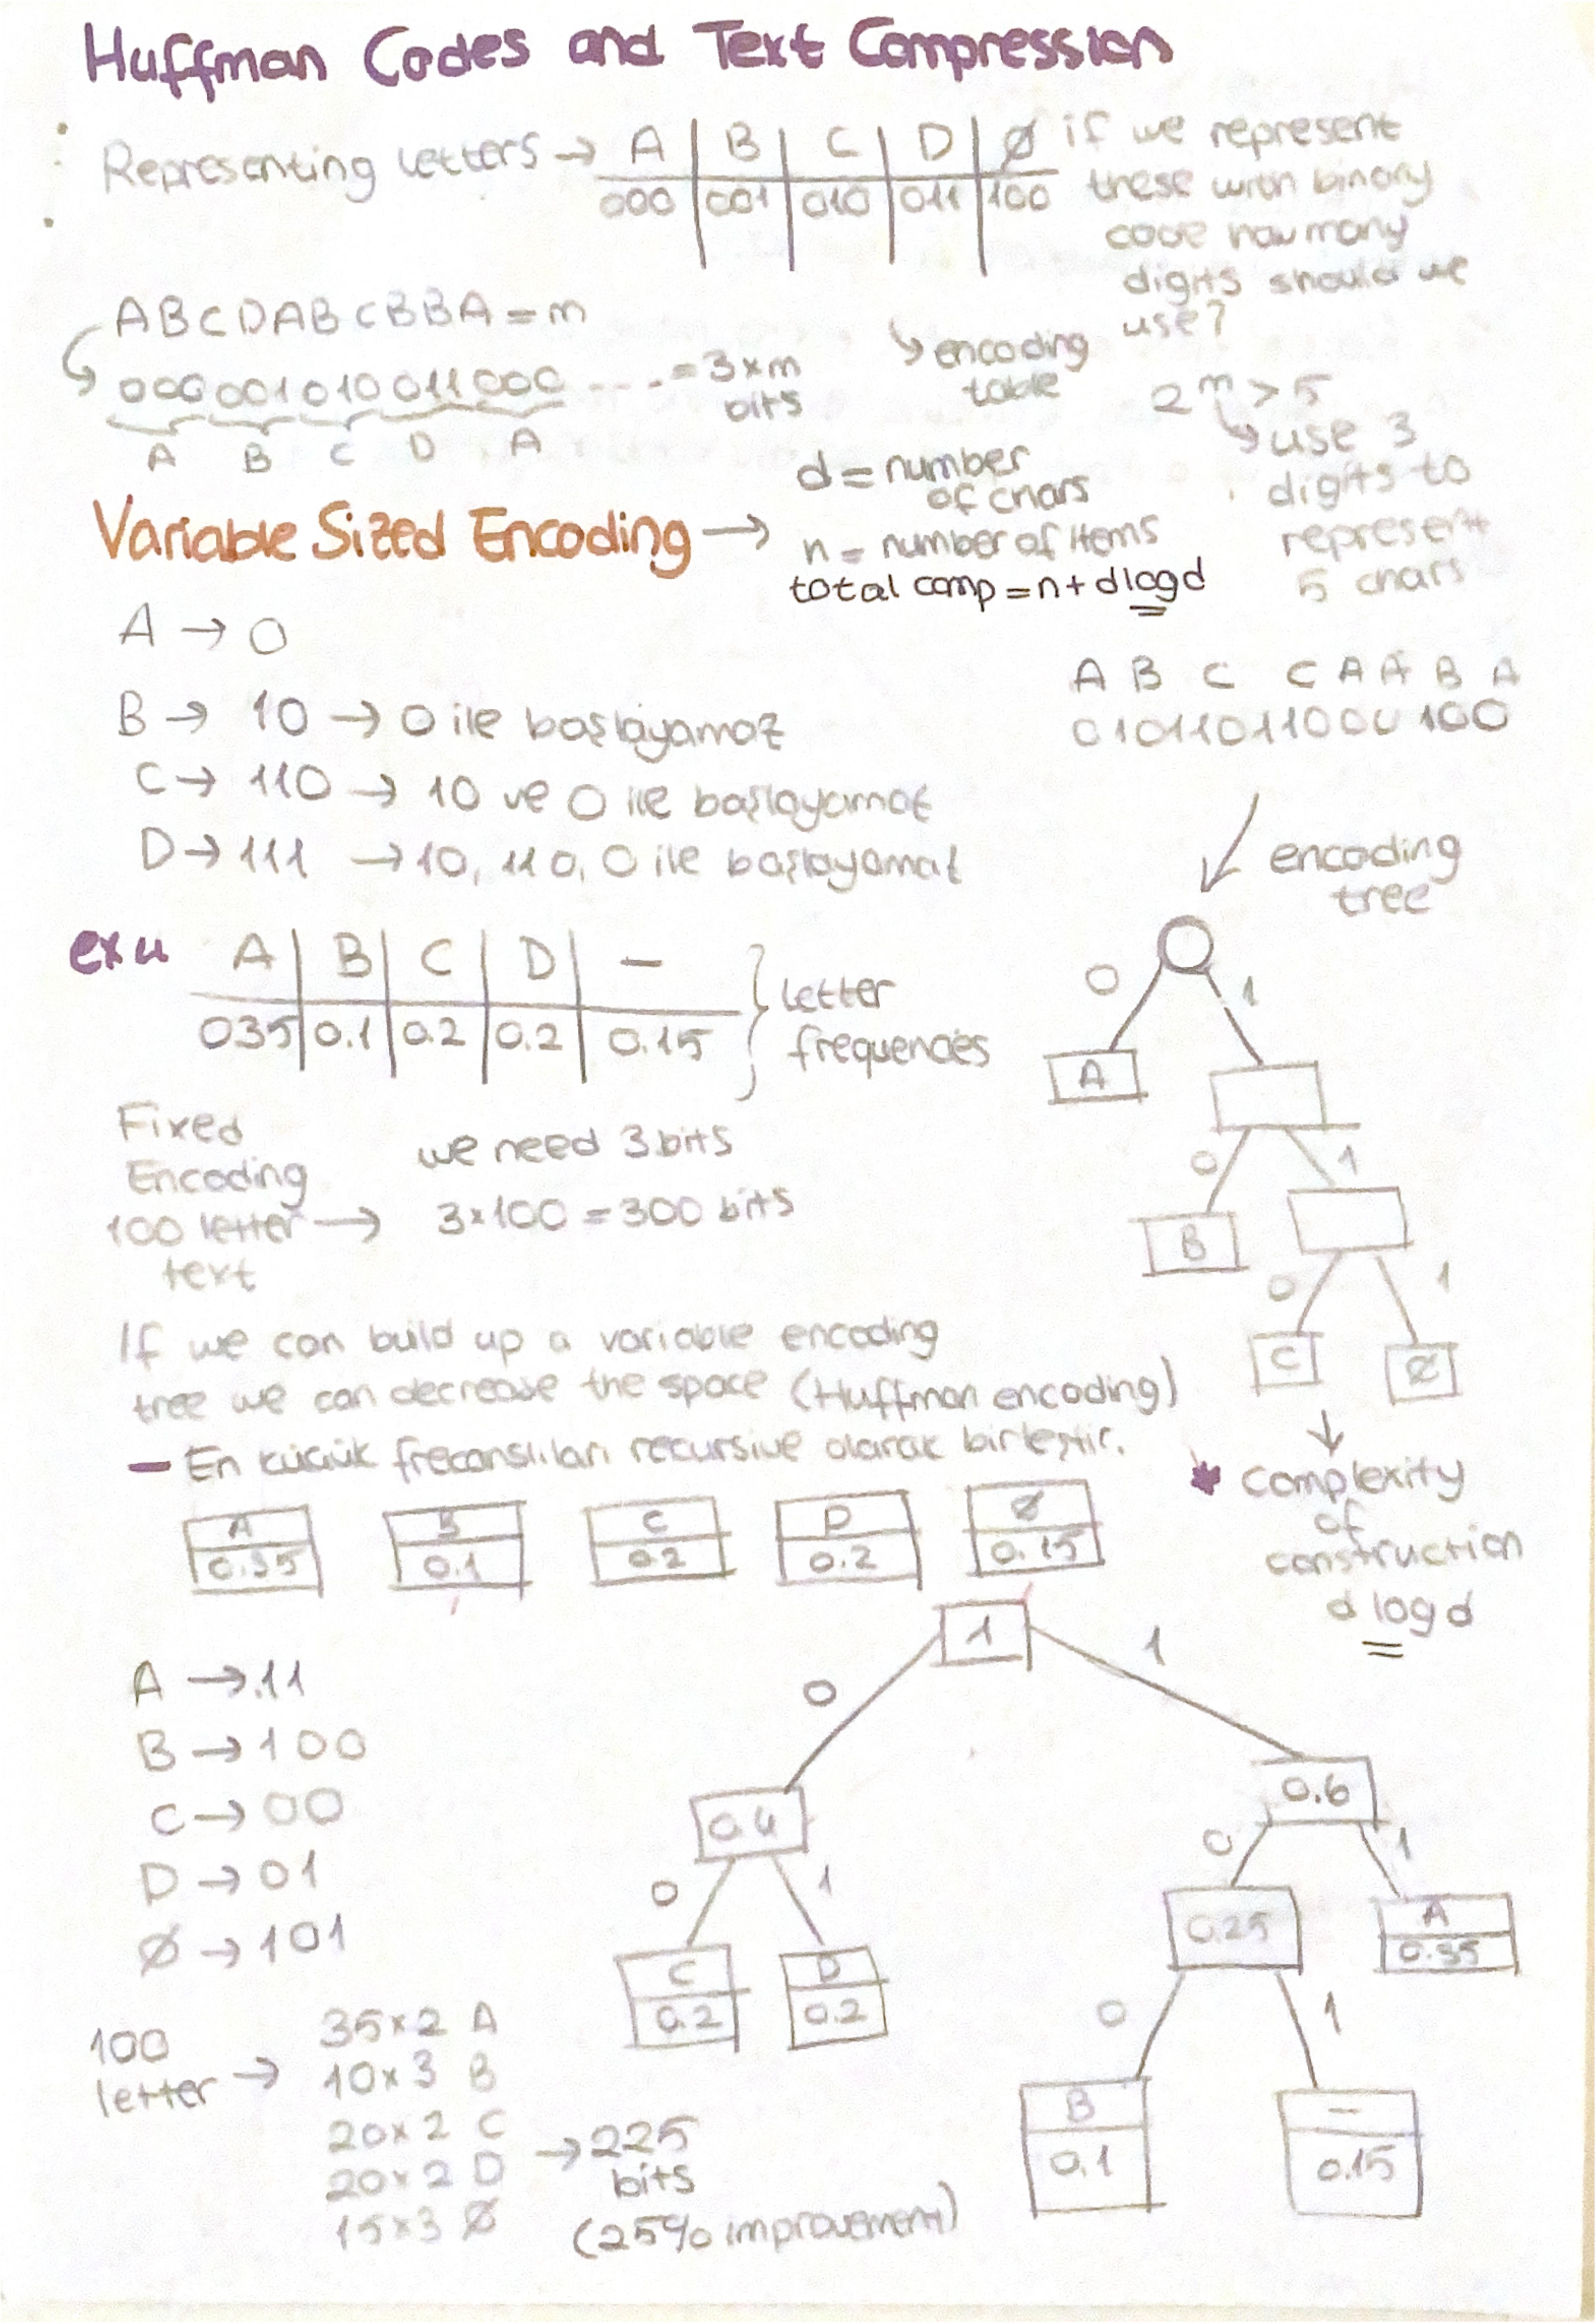 Huffman Codes and Text Compression
Representing Letters → A | B | C | D | Ø
000 | 001 | 010 | 011 | 100
if we represent
these with binary
code how many
digits should we
use?
↳ encoding
table
2^m > 5
↳ use 3
digits to
represent
5 chars
ABCDABCBBA = m
000 001 010 011 000 .... = 3×m
bits
A B C D A
d = number
of chars
n = number of items
total comp = n + dlogd
Variable Sized Encoding →
A → 0
B → 10 → 0 ile başlayamaz
C → 110 → 10 ve 0 ile başlayamaz
D → 111 → 10, 110, 0 ile başlayamaz
A B C C A A B A
0101101100 0 100
encoding
tree
0 1
A
0 1
B
0 1
C Ø
↓
* Complexity
of
construction
d log d
ex 4
A | B | C | D | —
035 | 0.1 | 0.2 | 0.2 | 0.15
} letter
frequencies
Fixed
Encoding
100 letter →
text
we need 3 bits
3×100 = 300 bits
If we can build up a variable encoding
tree we can decrease the space (Huffman encoding)
— En küçük freconslıları recursive olarak birleştir.
A B C D Ø
0.35 0.1 0.2 0.2 0.15
A → 11
B → 100
C → 00
D → 01
Ø → 101
1
0 1
0.4 0.6
0 1 0 1
C D 0.25 A
0.2 0.2 0.35
0 1
B —
0.1 0.15
100
letter →
35×2 A
10×3 B
20×2 C
20×2 D
15×3 Ø
→ 225
bits
(25% improvement)